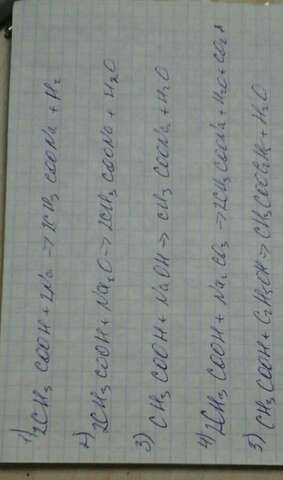 1) 2CH3COOH + 2Na → 2CH3COONa + H2
2) 2CH3COOH + Na2O → 2CH3COONa + H2O
3) CH3COOH + NaOH → CH3COONa + H2O
4) 2CH3COOH + Na2CO3 → 2CH3COONa + H2O + CO2↑
5) CH3COOH + C2H5OH → CH3COOC2H5 + H2O